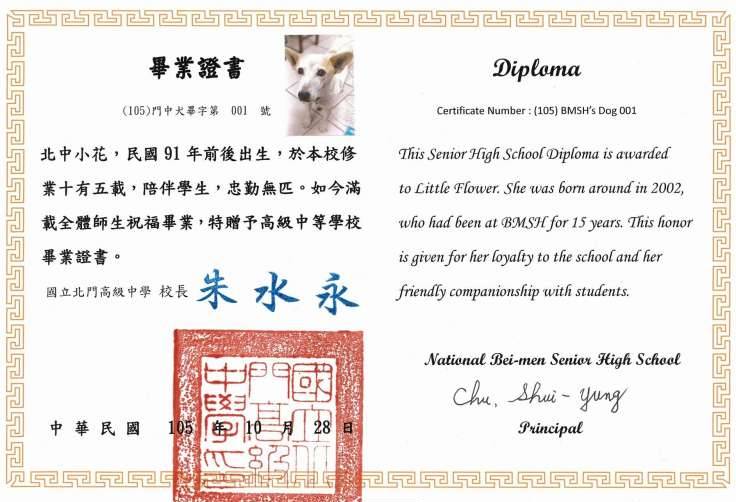 畢業證書
(105)門中犬畢字第 001 號
北中小花，民國 91 年前後出生，於本校修
業十有五載，陪伴學生，忠勤無匹。如今滿
載全體師生祝福畢業，特贈予高級中等學校
畢業證書。
國立北門高級中學 校長 朱水永
中華民國 105 年 10 月 28 日
Diploma
Certificate Number : (105) BMSH's Dog 001
This Senior High School Diploma is awarded
to Little Flower. She was born around in 2002,
who had been at BMSH for 15 years. This honor
is given for her loyalty to the school and her
friendly companionship with students.
National Bei-men Senior High School
Chu, Shui-yung
Principal